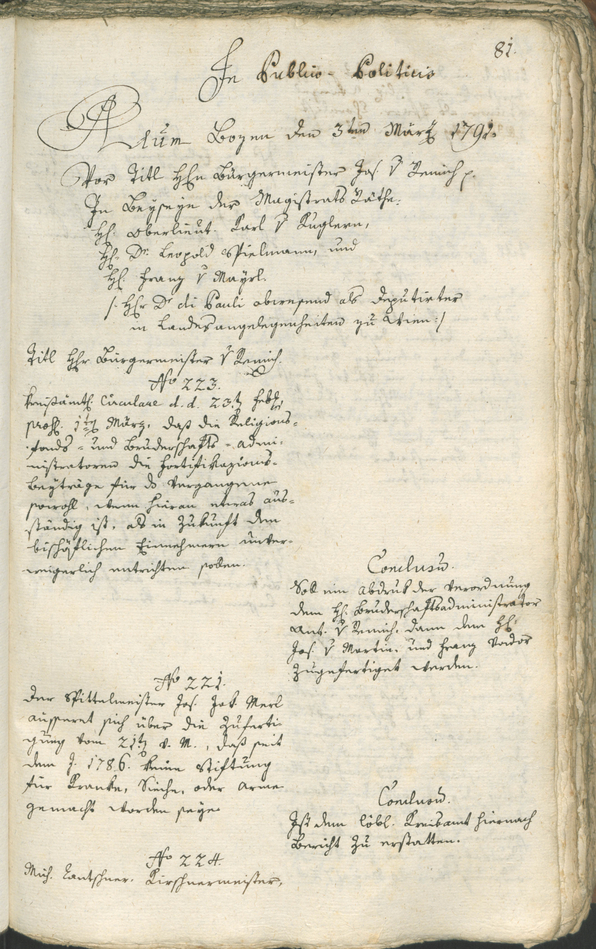 81.
In Publico-Politicis
Actum Bozen den 3ten März 1791.
Vor Titl Hhn Bürgermeister Jos. v Remich p.
In Beyseyn der Magistrats Räthe.
Hh. Oberlieut. Karl v Kuglern,
Hh. Dr. Leopold Spielmann, und
Hh. Franz v Mayrl.
/: Hhr Dr di Pauli abwesend als Deputirter
in Landesangelegenheiten zu Wien :/
Titl Hhr Bürgermeister v Remich
No 223.
Kreisämtl. Circulare d. d. 23t Feb.
präs. 1t März, daß die Religions-
fonds- und Bruderschafts-Admi-
nistratoren die Fortifikazions-
beyträge für das Vergangene
sowohl, wenn hieran etwas aus-
ständig ist, als in Zukunft dem
bischöflichen Einnehmern unver-
weigerlich entrichten sollen.
Conclusu.
Soll ein Abdruk der Verordnung
dem Hh. Bruderschaftsadministrator
Ant. v Remich, dann dem Hh.
Jos. v Martin, und Franz
zugefertiget werden.
No 221.
Der Spittelmeister Jos. Jak. Merl
äusseret sich über die Zuferti-
gung vom 21t v. M., daß seit
dem J. 1786. keine Stiftung
für Kranke, Sieche, oder Arme
gemacht worden seye.
Conclusu.
Ist dem löbl. Kreisamt hiernach
Bericht zu erstatten.
No 224.
Mich. Lantschner. Kirschnermeister,